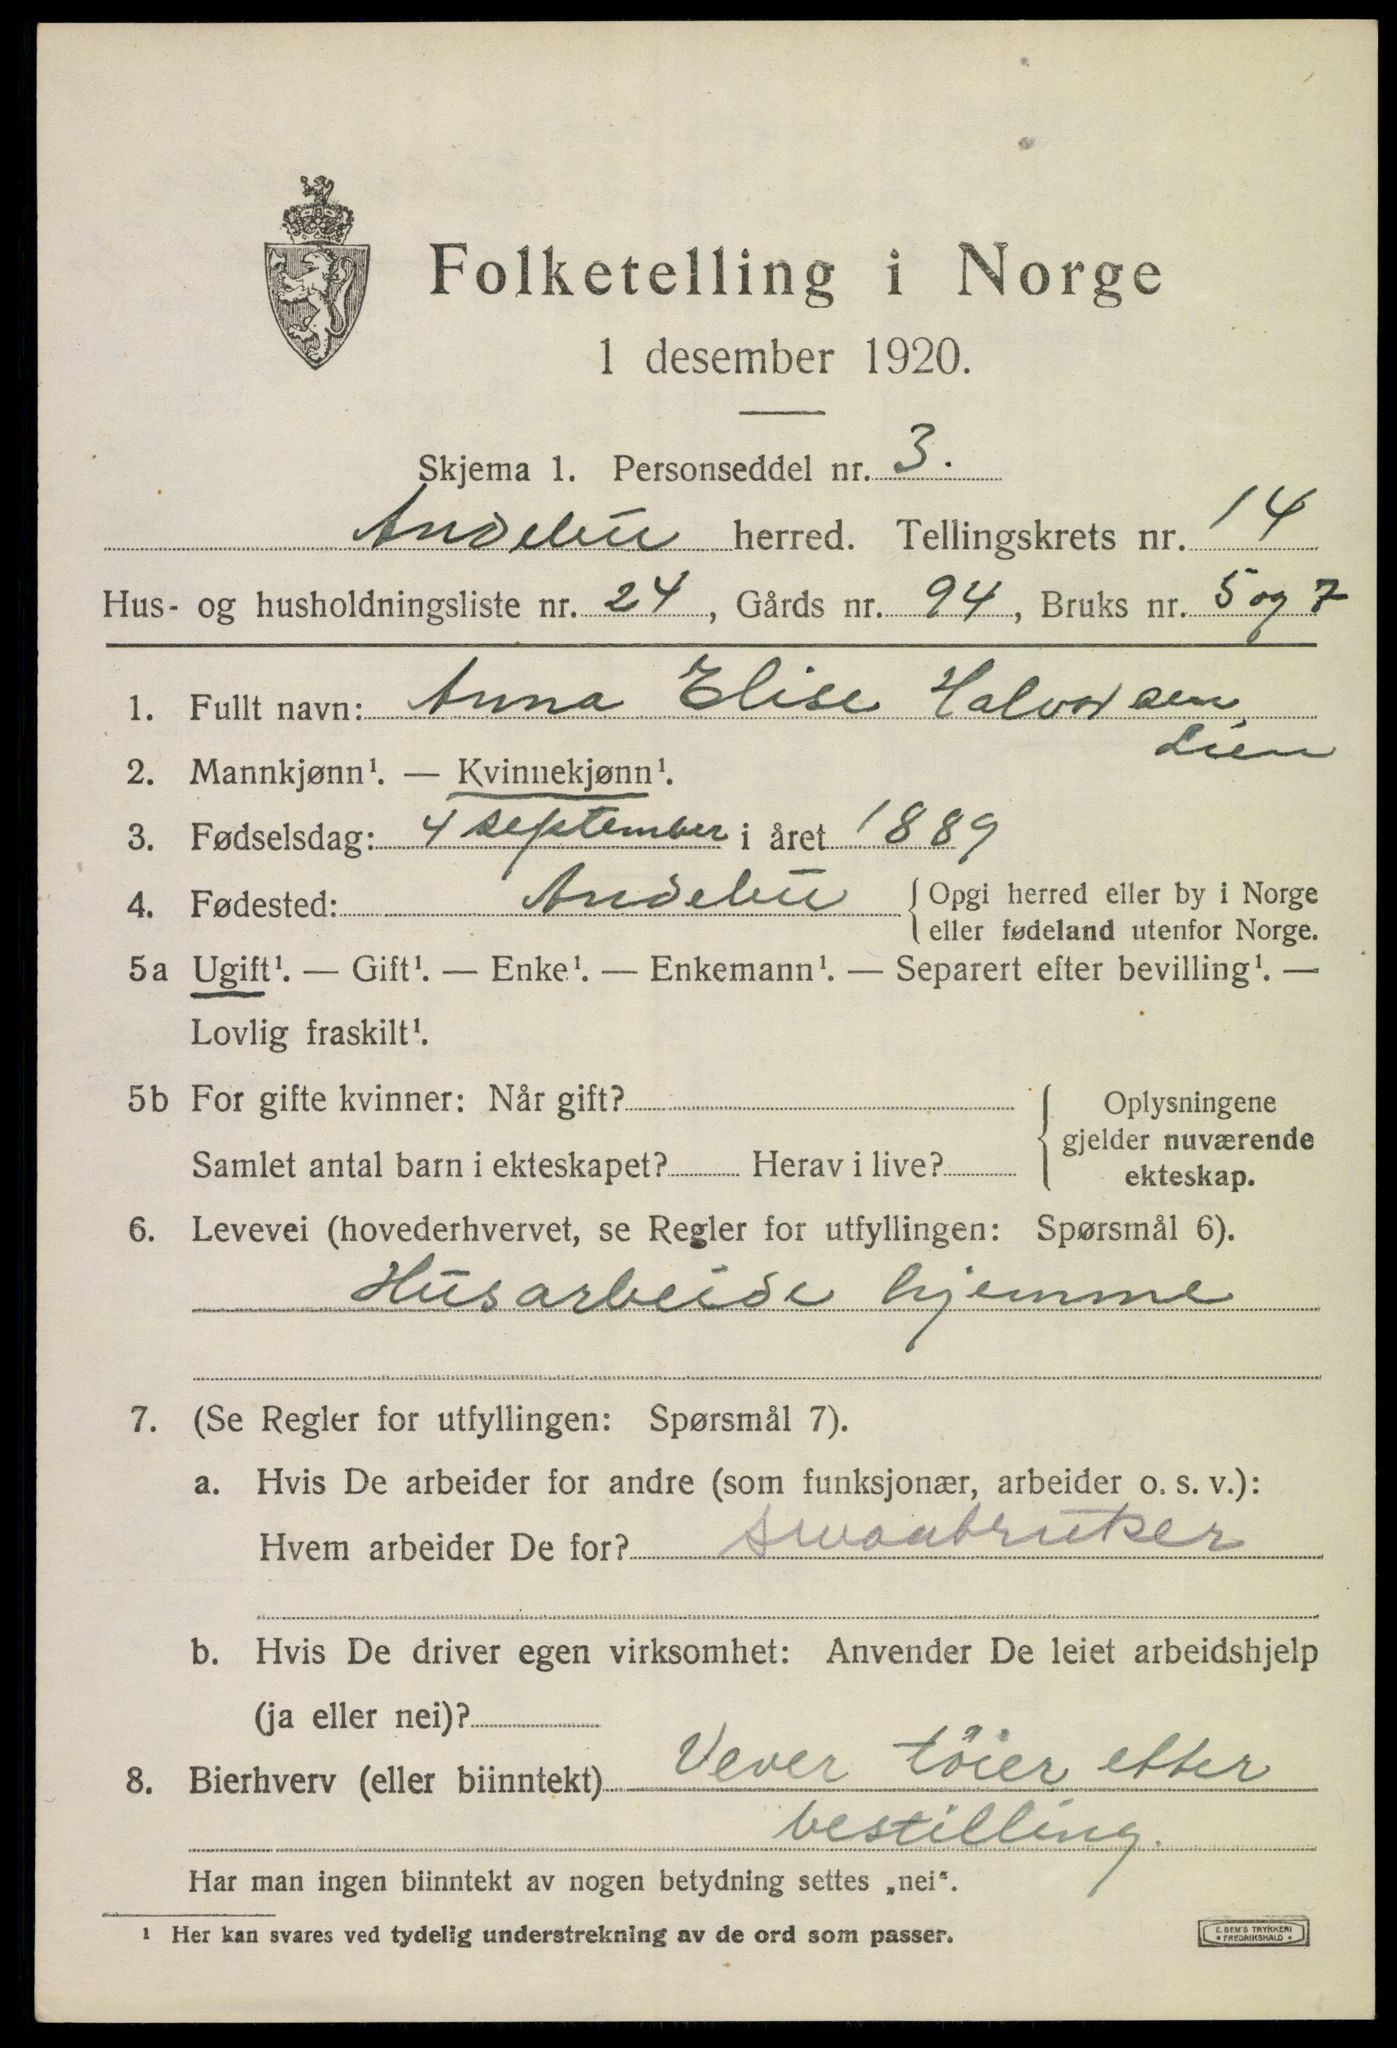 Folketelling i Norge
1 desember 1920.
Skjema 1. Personseddel nr. 3.
Andebu herred. Tellingskrets nr. 14
Hus- og husholdningsliste nr. 24, Gårds nr. 94, Bruks nr. 5 og 7
1. Fullt navn: Anna Elise Halvorsen
Lien
2. Mannkjønn¹. — Kvinnekjønn¹.
3. Fødselsdag: 4 september i året 1889
4. Fødested: Andebu { Opgi herred eller by i Norge
eller fødeland utenfor Norge.
5a Ugift¹. — Gift¹. — Enke¹. — Enkemann¹. — Separert efter bevilling¹. —
Lovlig fraskilt¹.
5b For gifte kvinner: Når gift?
Samlet antal barn i ekteskapet? Herav i live?
Oplysningene
gjelder nuværende
ekteskap.
6. Levevei (hovederhvervet, se Regler for utfyllingen: Spørsmål 6).
Husarbeide hjemme
7. (Se Regler for utfyllingen: Spørsmål 7).
a. Hvis De arbeider for andre (som funksjonær, arbeider o. s. v.):
Hvem arbeider De for? Smaabruker
b. Hvis De driver egen virksomhet: Anvender De leiet arbeidshjelp
(ja eller nei)?
8. Bierhverv (eller biinntekt) Vever töier etter
bestilling.
Har man ingen biinntekt av nogen betydning settes „nei“.
¹ Her kan svares ved tydelig understrekning av de ord som passer.
E. SEM'S TRYKKERI
FREDRIKSHALD